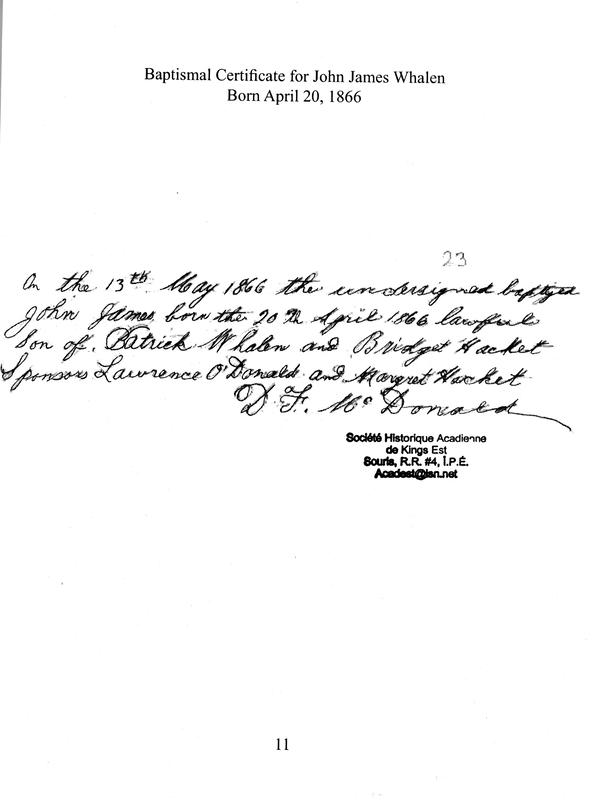 Baptismal Certificate for John James Whalen
Born April 20, 1866
23
On the 13th May 1866 the undersigned baptized
John James born the 20th April 1866 lawful
Son of Patrick Whalen and Bridget Hacket
Sponsors Lawrence O'Donald and Margret Hacket
D. F. Mc Donald
Société Historique Acadienne
de Kings Est
Souris, R.R. #4, Î.P.É.
Acadest@isn.net
11